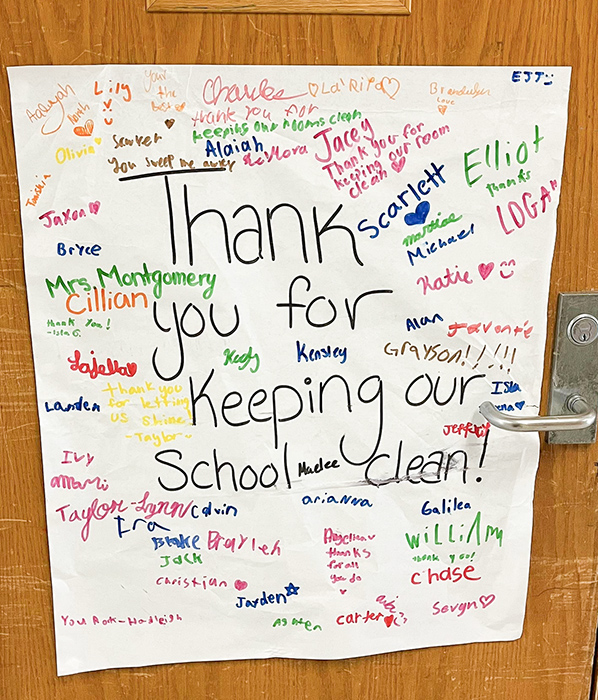 EJJ
Lily
Your
the
best
Charles
La'Rita
Aaliyah
Thank you for
keeping our rooms clean
Love
Scarlet
Alaiah
Olivia
You sweep me away
Jacey
Thank you for
keeping our room
clean
Elliot
thanks
LOGAN
Scarlett
Michael
Jaxon
Bryce
Thank
Katie
Mrs. Montgomery
Cillian
thank you!
-Isla G.
you for
Alan
Javonte
Lajella
Keely
Kensley
GRAYSON!/!!!
thank you
for letting
US Shine
-Taylor
Landen
Keeping our
Isla
Jeffery
School
Maelee
clean!
Ivy
amani
Taylor-Lynn
Calvin
arianna
Galilea
Ira
Blake
Brayleh
Jack
Angelina
thanks
for all
you do
William
thank you!
chase
Christian
Jayden
Carter
Sevyn
You Rock-Hadleigh